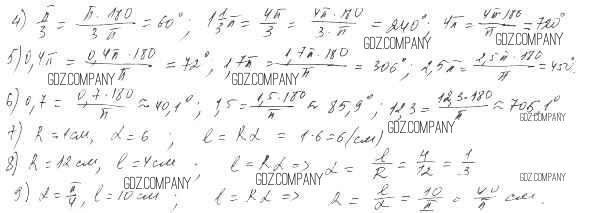 4) π/3 = π·180/3π = 60°; 1 1/3 π = 4π/3 = 4π·180/3·π = 240°; 4π = 4π·180/π = 720°
GDZ.COMPANY GDZ.COMPANY
5) 0,4π = 0,4π·180/π = 72°; 1,7π = 1,7π·180/π = 306°; 2,5π = 2,5π·180/π = 450°.
GDZ.COMPANY GDZ.COMPANY
6) 0,7 = 0,7·180/π ≈ 40,1°; 1,5 = 1,5·180/π ≈ 85,9°; 12,3 = 12,3·180/π ≈ 705,1°
GDZ.COMPANY GDZ.COMPANY
7) R = 1см, α = 6; l = Rα = 1·6 = 6 (см)
8) R = 12см, l = 4см; l = Rα => α = l/R = 4/12 = 1/3
GDZ.COMPANY GDZ.COMPANY GDZ.COMPANY
9) α = π/4, l = 10см; l = Rα => R = l/α = 10/π = 40/π см.